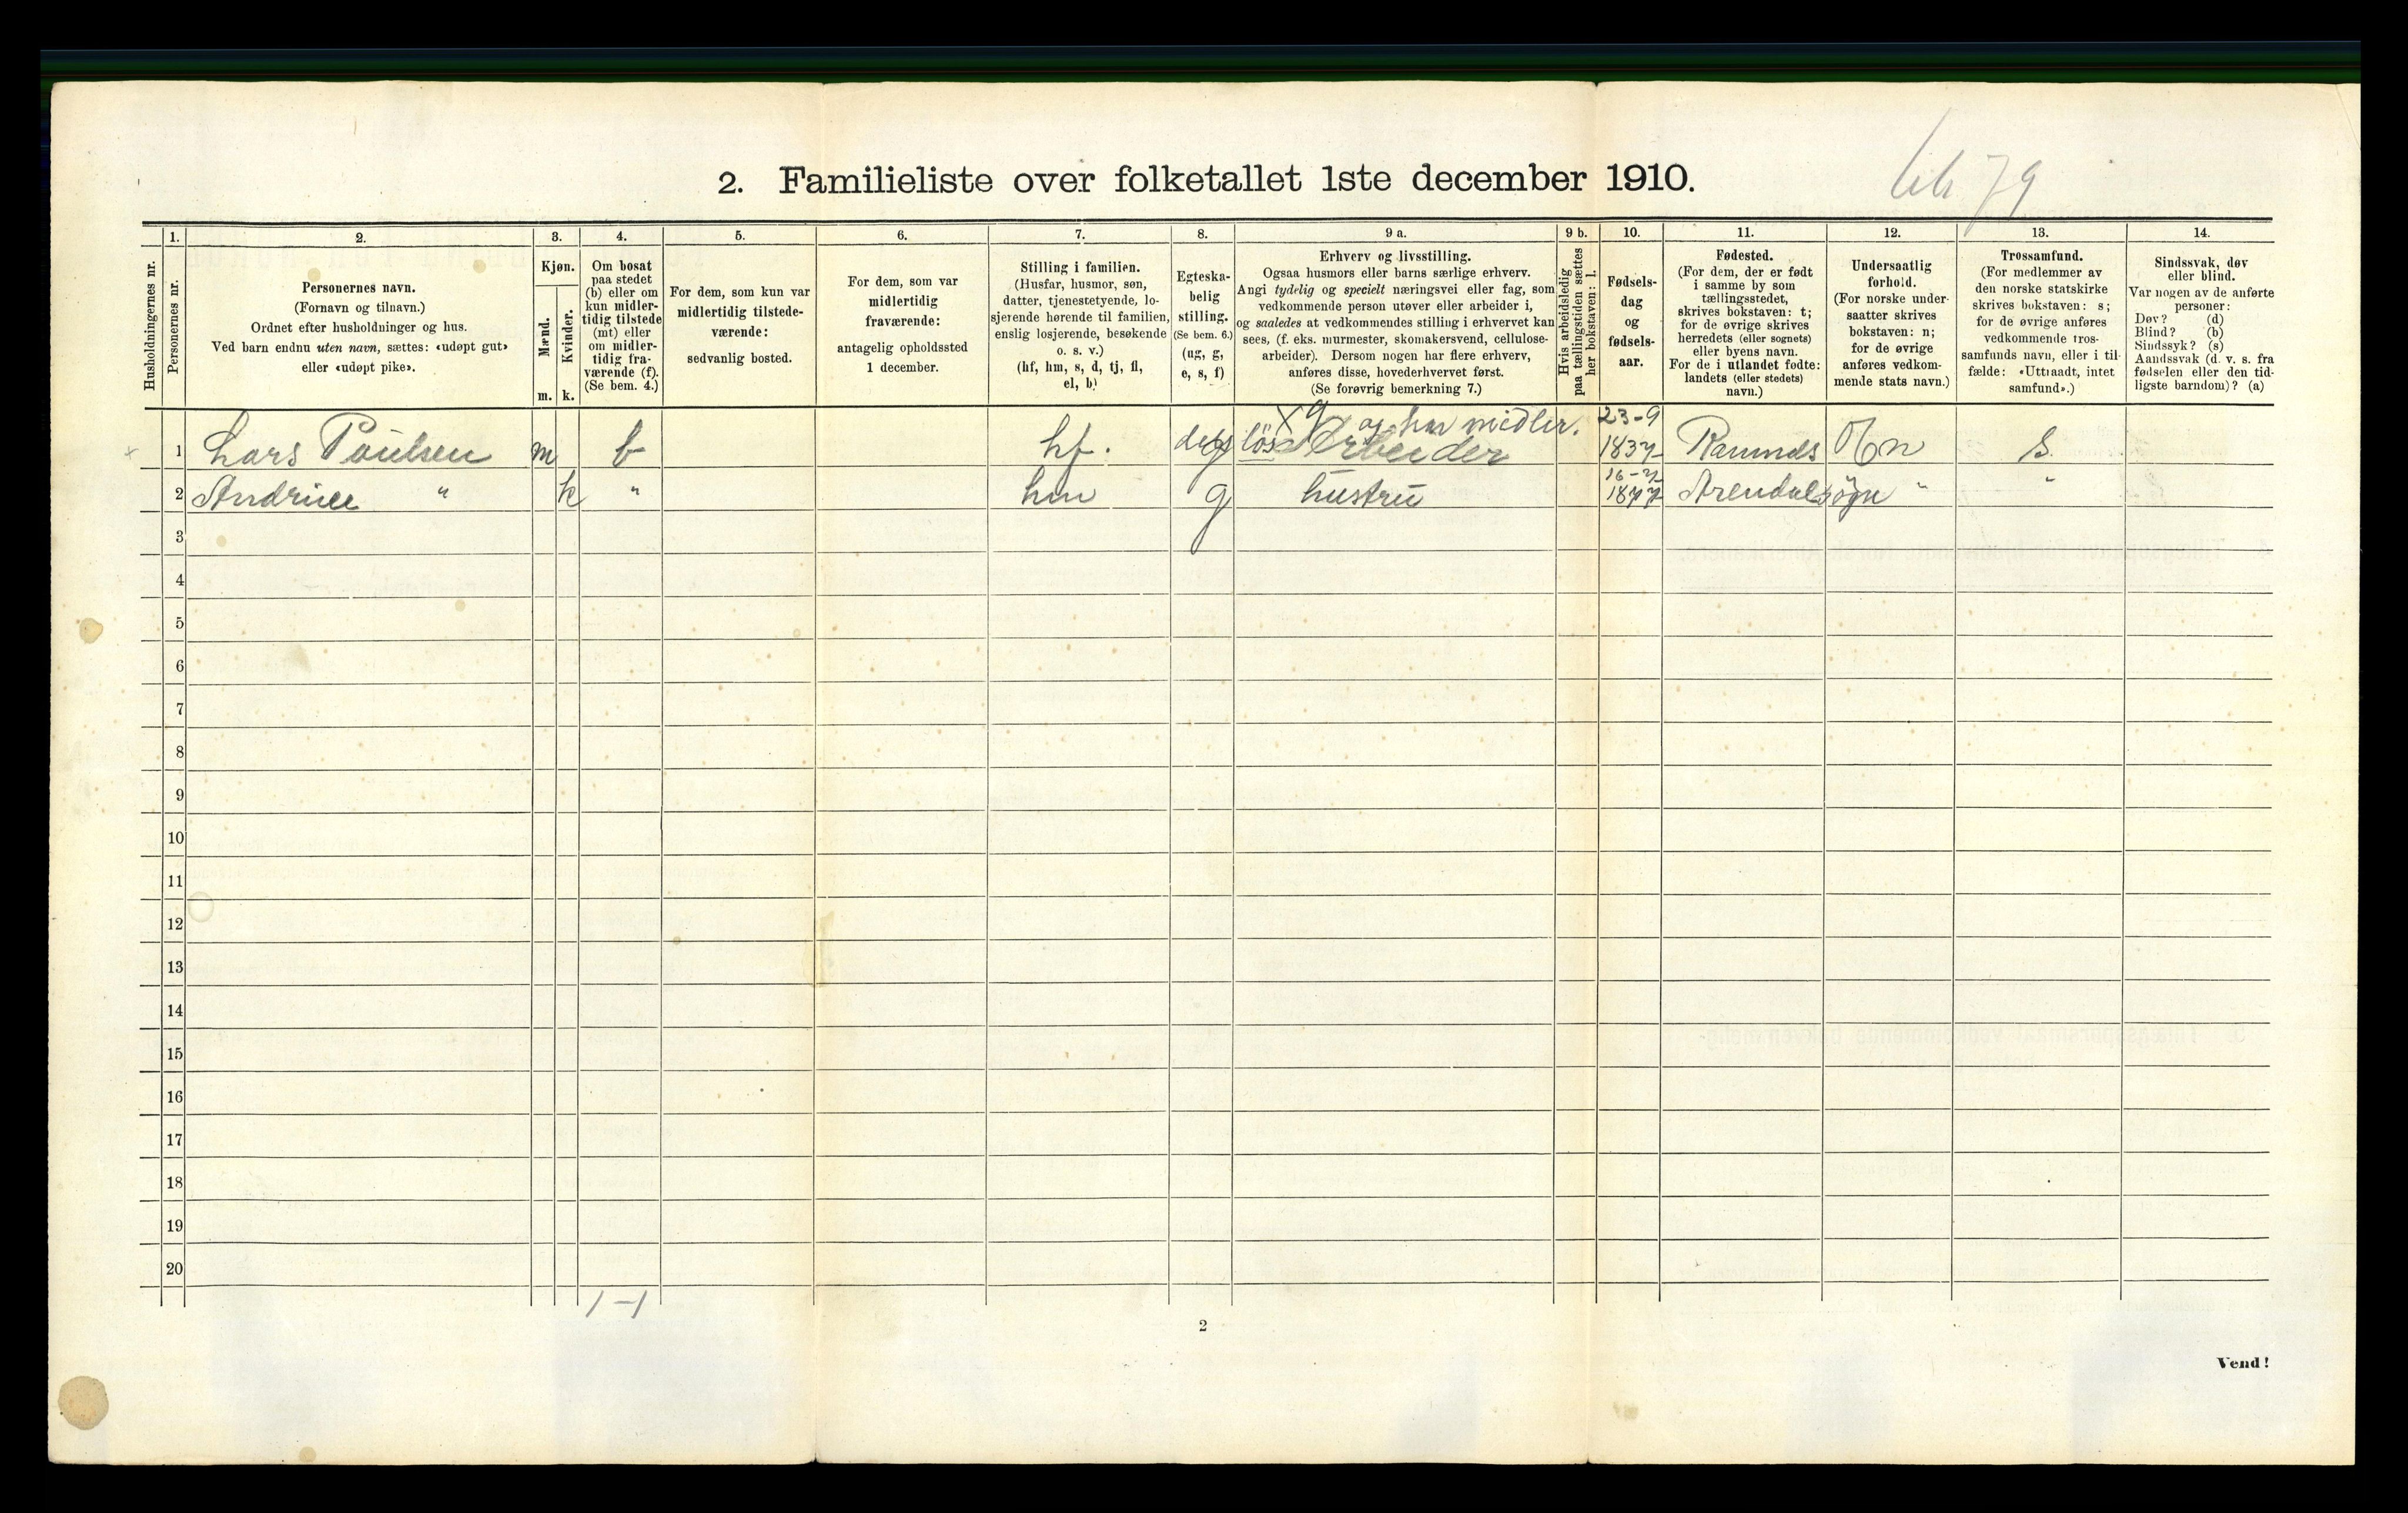 2. Familieliste over folketallet 1ste december 1910.
79
Husholdningernes nr.
1.
Personernes nr.
2.
Personernes navn.
(Fornavn og tilnavn.)
Ordnet efter husholdninger og hus.
Ved barn endnu uten navn, sættes: «udøpt gut»
eller «udøpt pike».
3.
Kjøn.
Mænd.
Kvinder.
m. k.
4.
Om bosat
paa stedet
(b) eller om
kun midler-
tidig tilstede
(mt) eller
om midler-
tidig fra-
værende (f).
(Se bem. 4.)
5.
For dem, som kun var
midlertidig tilstede-
værende:
sedvanlig bosted.
6.
For dem, som var
midlertidig
fraværende:
antagelig opholdssted
1 december.
7.
Stilling i familien.
(Husfar, husmor, søn,
datter, tjenestetyende, lo-
sjerende hørende til familien,
enslig losjerende, besøkende
o. s. v.)
(hf, hm, s, d, tj, fl,
el, b)
8.
Egteska-
belig
stilling.
(Se bem. 6.)
(ug, g,
e, s, f)
9 a.
Erhverv og livsstilling.
Ogsaa husmors eller barns særlige erhverv.
Angi tydelig og specielt næringsvei eller fag, som
vedkommende person utøver eller arbeider i,
og saaledes at vedkommendes stilling i erhvervet kan
sees, (f. eks. murmester, skomakersvend, cellulose-
arbeider). Dersom nogen har flere erhverv,
anføres disse, hovederhvervet først.
(Se forøvrig bemerkning 7.)
9 b.
Hvis arbeidsledig
paa tællingstiden sættes
her bokstaven: l.
10.
Fødsels-
dag
og
fødsels-
aar.
11.
Fødested.
(For dem, der er født
i samme by som
tællingsstedet,
skrives bokstaven: t;
for de øvrige skrives
herredets (eller sognets)
eller byens navn.
For de i utlandet fødte:
landets (eller stedets)
navn.)
12.
Undersaatlig
forhold.
(For norske under-
saatter skrives
bokstaven: n;
for de øvrige
anføres vedkom-
mende stats navn.)
13.
Trossamfund.
(For medlemmer av
den norske statskirke
skrives bokstaven: s;
for de øvrige anføres
vedkommende tros-
samfunds navn, eller i til-
fælde: «Uttraadt, intet
samfund».)
14.
Sindssvak, døv
eller blind.
Var nogen av de anførte
personer:
Døv? (d)
Blind? (b)
Sindssyk? (s)
Aandssvak (d. v. s. fra
fødselen eller den tid-
ligste barndom)? (a)
midler. 23-9
1 Lars Paulsen m b hf. g Arbeider 1837 n s
16-7
2 Andrine " k " hm g hustru 1877 Arendalsögn " "
3
4
5
6
7
8
9
10
11
12
13
14
15
16
17
18
19
20
1 - 1
2
Vend!